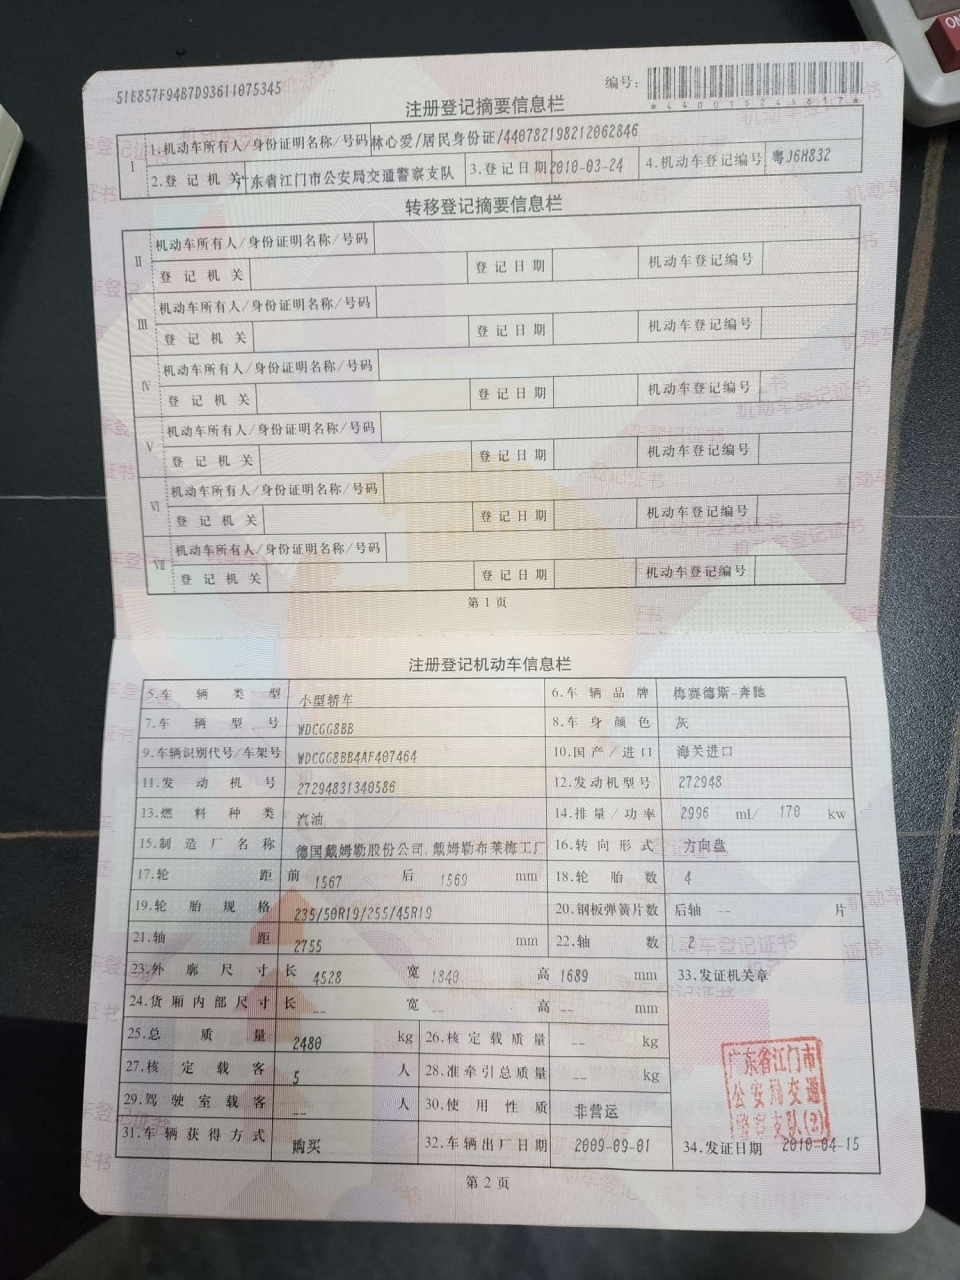 51E857F94B7D93611075345
编号:
*440016246817*
注册登记摘要信息栏
I 1.机动车所有人/身份证明名称/号码 林心爱/居民身份证/440782198212062846
2.登记机关 广东省江门市公安局交通警察支队 3.登记日期 2010-03-24 4.机动车登记编号 粤J6H832
转移登记摘要信息栏
II 机动车所有人/身份证明名称/号码
登记机关 登记日期 机动车登记编号
III 机动车所有人/身份证明名称/号码
登记机关 登记日期 机动车登记编号
IV 机动车所有人/身份证明名称/号码
登记机关 登记日期 机动车登记编号
V 机动车所有人/身份证明名称/号码
登记机关 登记日期 机动车登记编号
VI 机动车所有人/身份证明名称/号码
登记机关 登记日期 机动车登记编号
VII 机动车所有人/身份证明名称/号码
登记机关 登记日期 机动车登记编号
第 1 页
注册登记机动车信息栏
5.车辆类型 小型轿车 6.车辆品牌 梅赛德斯-奔驰
7.车辆型号 WDCGG8BB 8.车身颜色 灰
9.车辆识别代号/车架号 WDCGG8BB4AF407464 10.国产/进口 海关进口
11.发动机号 27294831340586 12.发动机型号 272948
13.燃料种类 汽油 14.排量/功率 2996 ml/ 170 kw
15.制造厂名称 德国戴姆勒股份公司,戴姆勒布莱梅工厂 16.转向形式 方向盘
17.轮距 前 1567 后 1569 mm 18.轮胎数 4
19.轮胎规格 235/50R19/255/45R19 20.钢板弹簧片数 后轴 -- 片
21.轴距 2755 mm 22.轴数 2
23.外廓尺寸 长 4528 宽 1840 高 1689 mm 33.发证机关章
24.货厢内部尺寸 长 -- 宽 -- 高 -- mm
25.总质量 2480 kg 26.核定载质量 -- kg
27.核定载客 5 人 28.准牵引总质量 -- kg
29.驾驶室载客 -- 人 30.使用性质 非营运
31.车辆获得方式 购买 32.车辆出厂日期 2009-09-01 34.发证日期 2010-04-15
广东省江门市
公安局交通
警察支队(2)
第 2 页